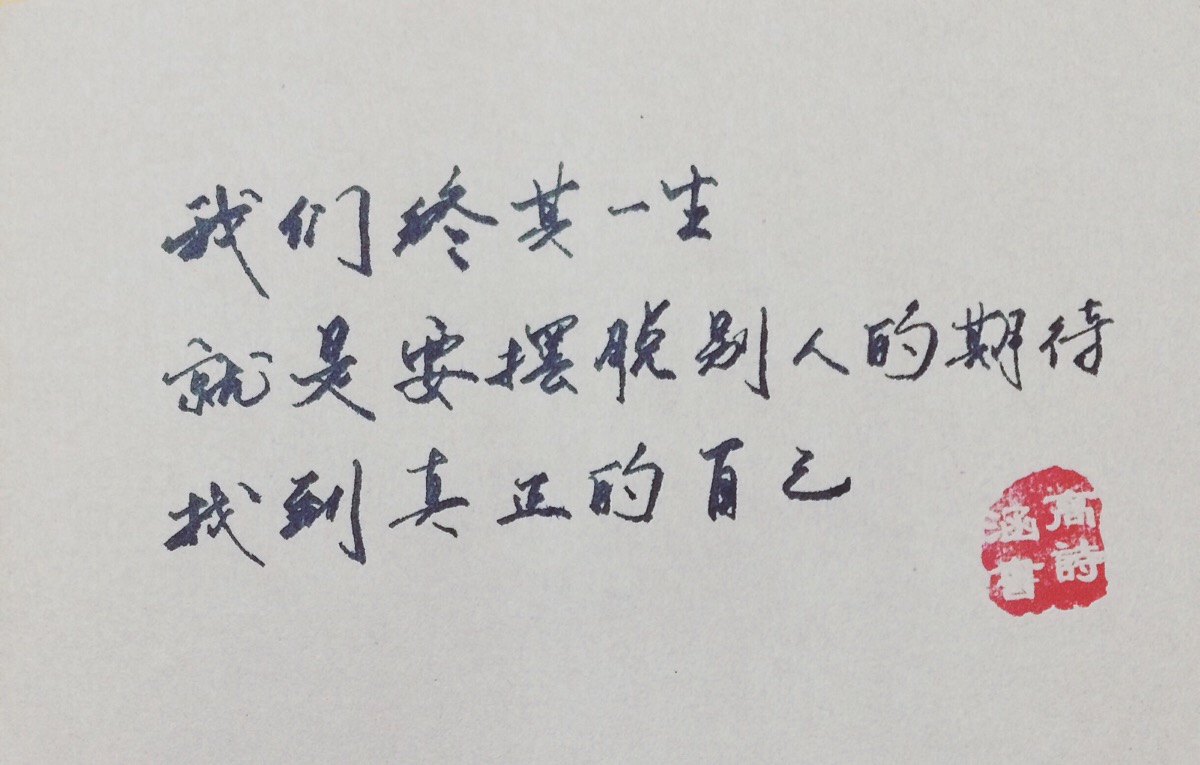 我们终其一生
就是要摆脱别人的期待
找到真正的自己
高詩
涵書